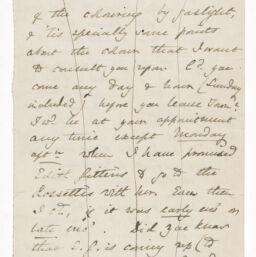 & the
by gaslight,
& tis specially some points
about the that I want
to consult you upon. Cd. you
come any day & hour (Sunday
included) before you leave Town?
I wd. be at your appointment
any time except Monday
aftn when I have promised
Edith & go to the
Rossettis with her. Even then
I cd., if it was early evg or
late evg. Did you know
that is coming up (to